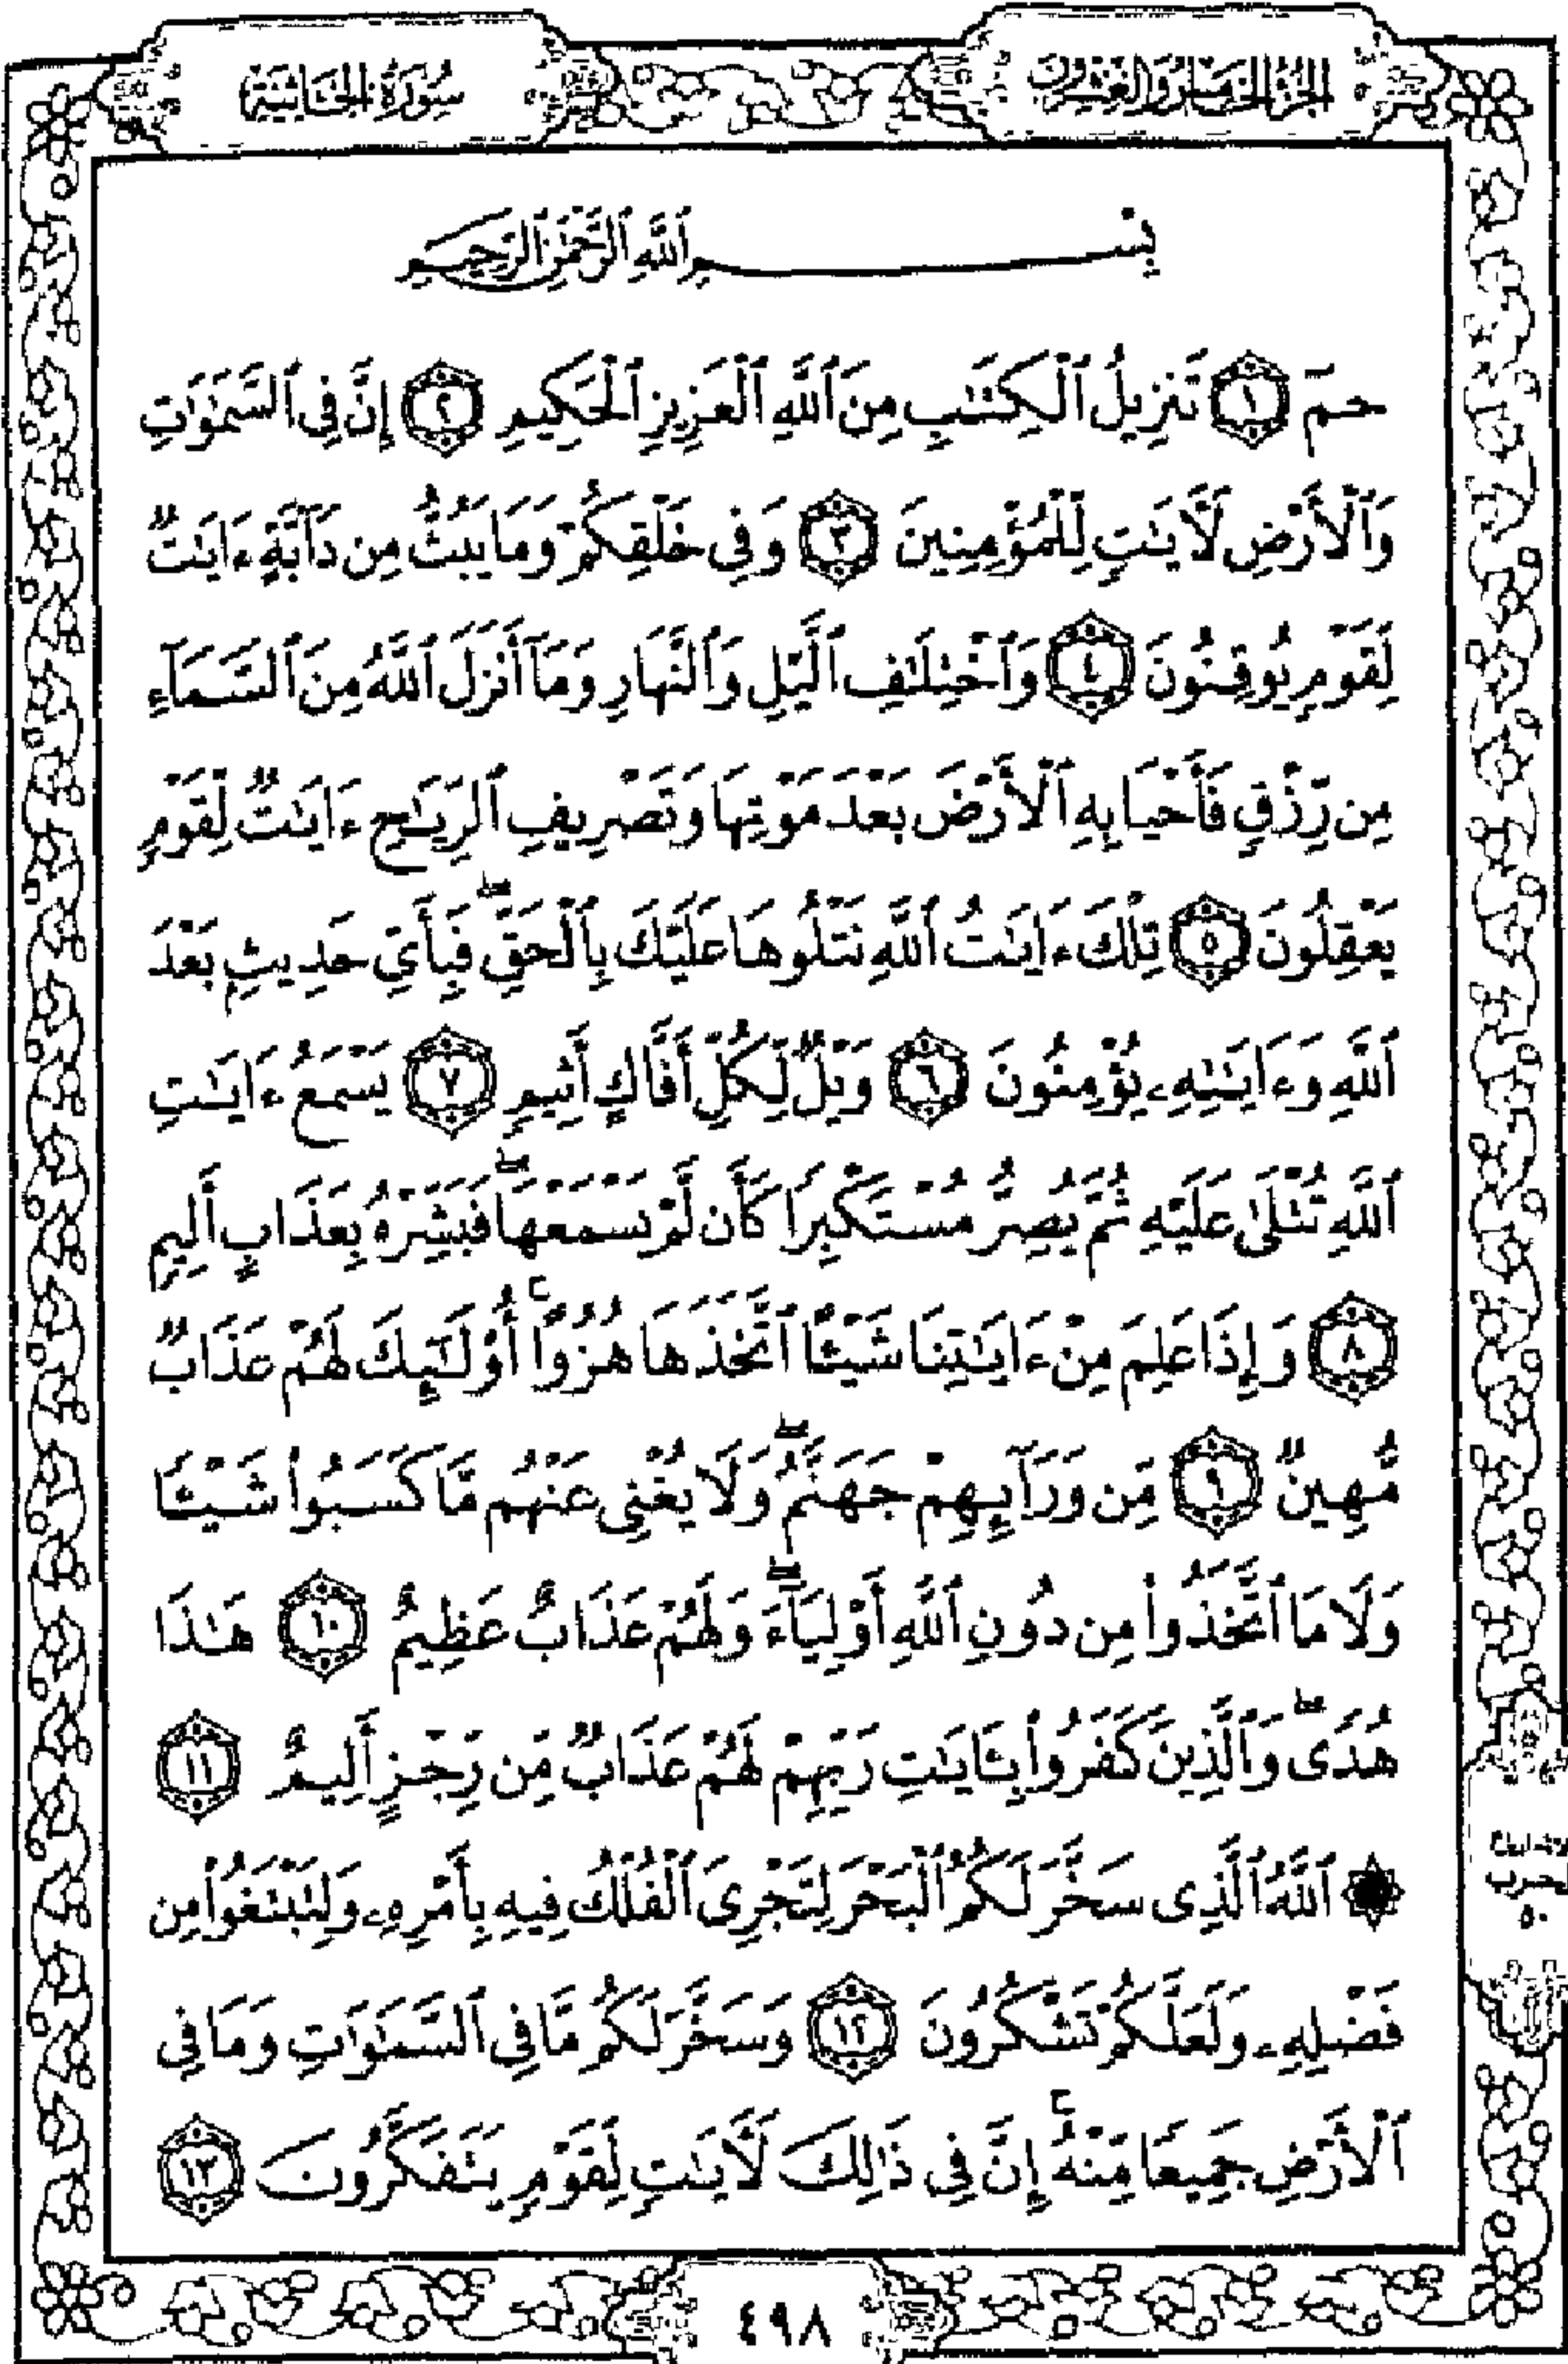 الجزء الخامس والعشرون
سورة الجاثية
بِسْمِ ٱللَّهِ ٱلرَّحْمَٰنِ ٱلرَّحِيمِ
حمٓ ١ تَنزِيلُ ٱلْكِتَٰبِ مِنَ ٱللَّهِ ٱلْعَزِيزِ ٱلْحَكِيمِ ٢ إِنَّ فِى ٱلسَّمَٰوَٰتِ
وَٱلْأَرْضِ لَءَايَٰتٍ لِّلْمُؤْمِنِينَ ٣ وَفِى خَلْقِكُمْ وَمَا يَبُثُّ مِن دَآبَّةٍ ءَايَٰتٌ
لِّقَوْمٍ يُوقِنُونَ ٤ وَٱخْتِلَٰفِ ٱلَّيْلِ وَٱلنَّهَارِ وَمَآ أَنزَلَ ٱللَّهُ مِنَ ٱلسَّمَآءِ
مِن رِّزْقٍ فَأَحْيَا بِهِ ٱلْأَرْضَ بَعْدَ مَوْتِهَا وَتَصْرِيفِ ٱلرِّيَٰحِ ءَايَٰتٌ لِّقَوْمٍ
يَعْقِلُونَ ٥ تِلْكَ ءَايَٰتُ ٱللَّهِ نَتْلُوهَا عَلَيْكَ بِٱلْحَقِّ ۖ فَبِأَىِّ حَدِيثٍۭ بَعْدَ
ٱللَّهِ وَءَايَٰتِهِۦ يُؤْمِنُونَ ٦ وَيْلٌ لِّكُلِّ أَفَّاكٍ أَثِيمٍ ٧ يَسْمَعُ ءَايَٰتِ
ٱللَّهِ تُتْلَىٰ عَلَيْهِ ثُمَّ يُصِرُّ مُسْتَكْبِرًا كَأَن لَّمْ يَسْمَعْهَا ۖ فَبَشِّرْهُ بِعَذَابٍ أَلِيمٍ
٨ وَإِذَا عَلِمَ مِنْ ءَايَٰتِنَا شَيْـًٔا ٱتَّخَذَهَا هُزُوًا ۚ أُو۟لَٰٓئِكَ لَهُمْ عَذَابٌ
مُّهِينٌ ٩ مِّن وَرَآئِهِمْ جَهَنَّمُ ۖ وَلَا يُغْنِى عَنْهُم مَّا كَسَبُوا۟ شَيْـًٔا
وَلَا مَا ٱتَّخَذُوا۟ مِن دُونِ ٱللَّهِ أَوْلِيَآءَ ۖ وَلَهُمْ عَذَابٌ عَظِيمٌ ١٠ هَٰذَا
هُدًى ۖ وَٱلَّذِينَ كَفَرُوا۟ بِـَٔايَٰتِ رَبِّهِمْ لَهُمْ عَذَابٌ مِّن رِّجْزٍ أَلِيمٌ ١١
۞ ٱللَّهُ ٱلَّذِى سَخَّرَ لَكُمُ ٱلْبَحْرَ لِتَجْرِىَ ٱلْفُلْكُ فِيهِ بِأَمْرِهِۦ وَلِتَبْتَغُوا۟ مِن
فَضْلِهِۦ وَلَعَلَّكُمْ تَشْكُرُونَ ١٢ وَسَخَّرَ لَكُم مَّا فِى ٱلسَّمَٰوَٰتِ وَمَا فِى
ٱلْأَرْضِ جَمِيعًا مِّنْهُ ۚ إِنَّ فِى ذَٰلِكَ لَءَايَٰتٍ لِّقَوْمٍ يَتَفَكَّرُونَ ١٣
٤٩٨